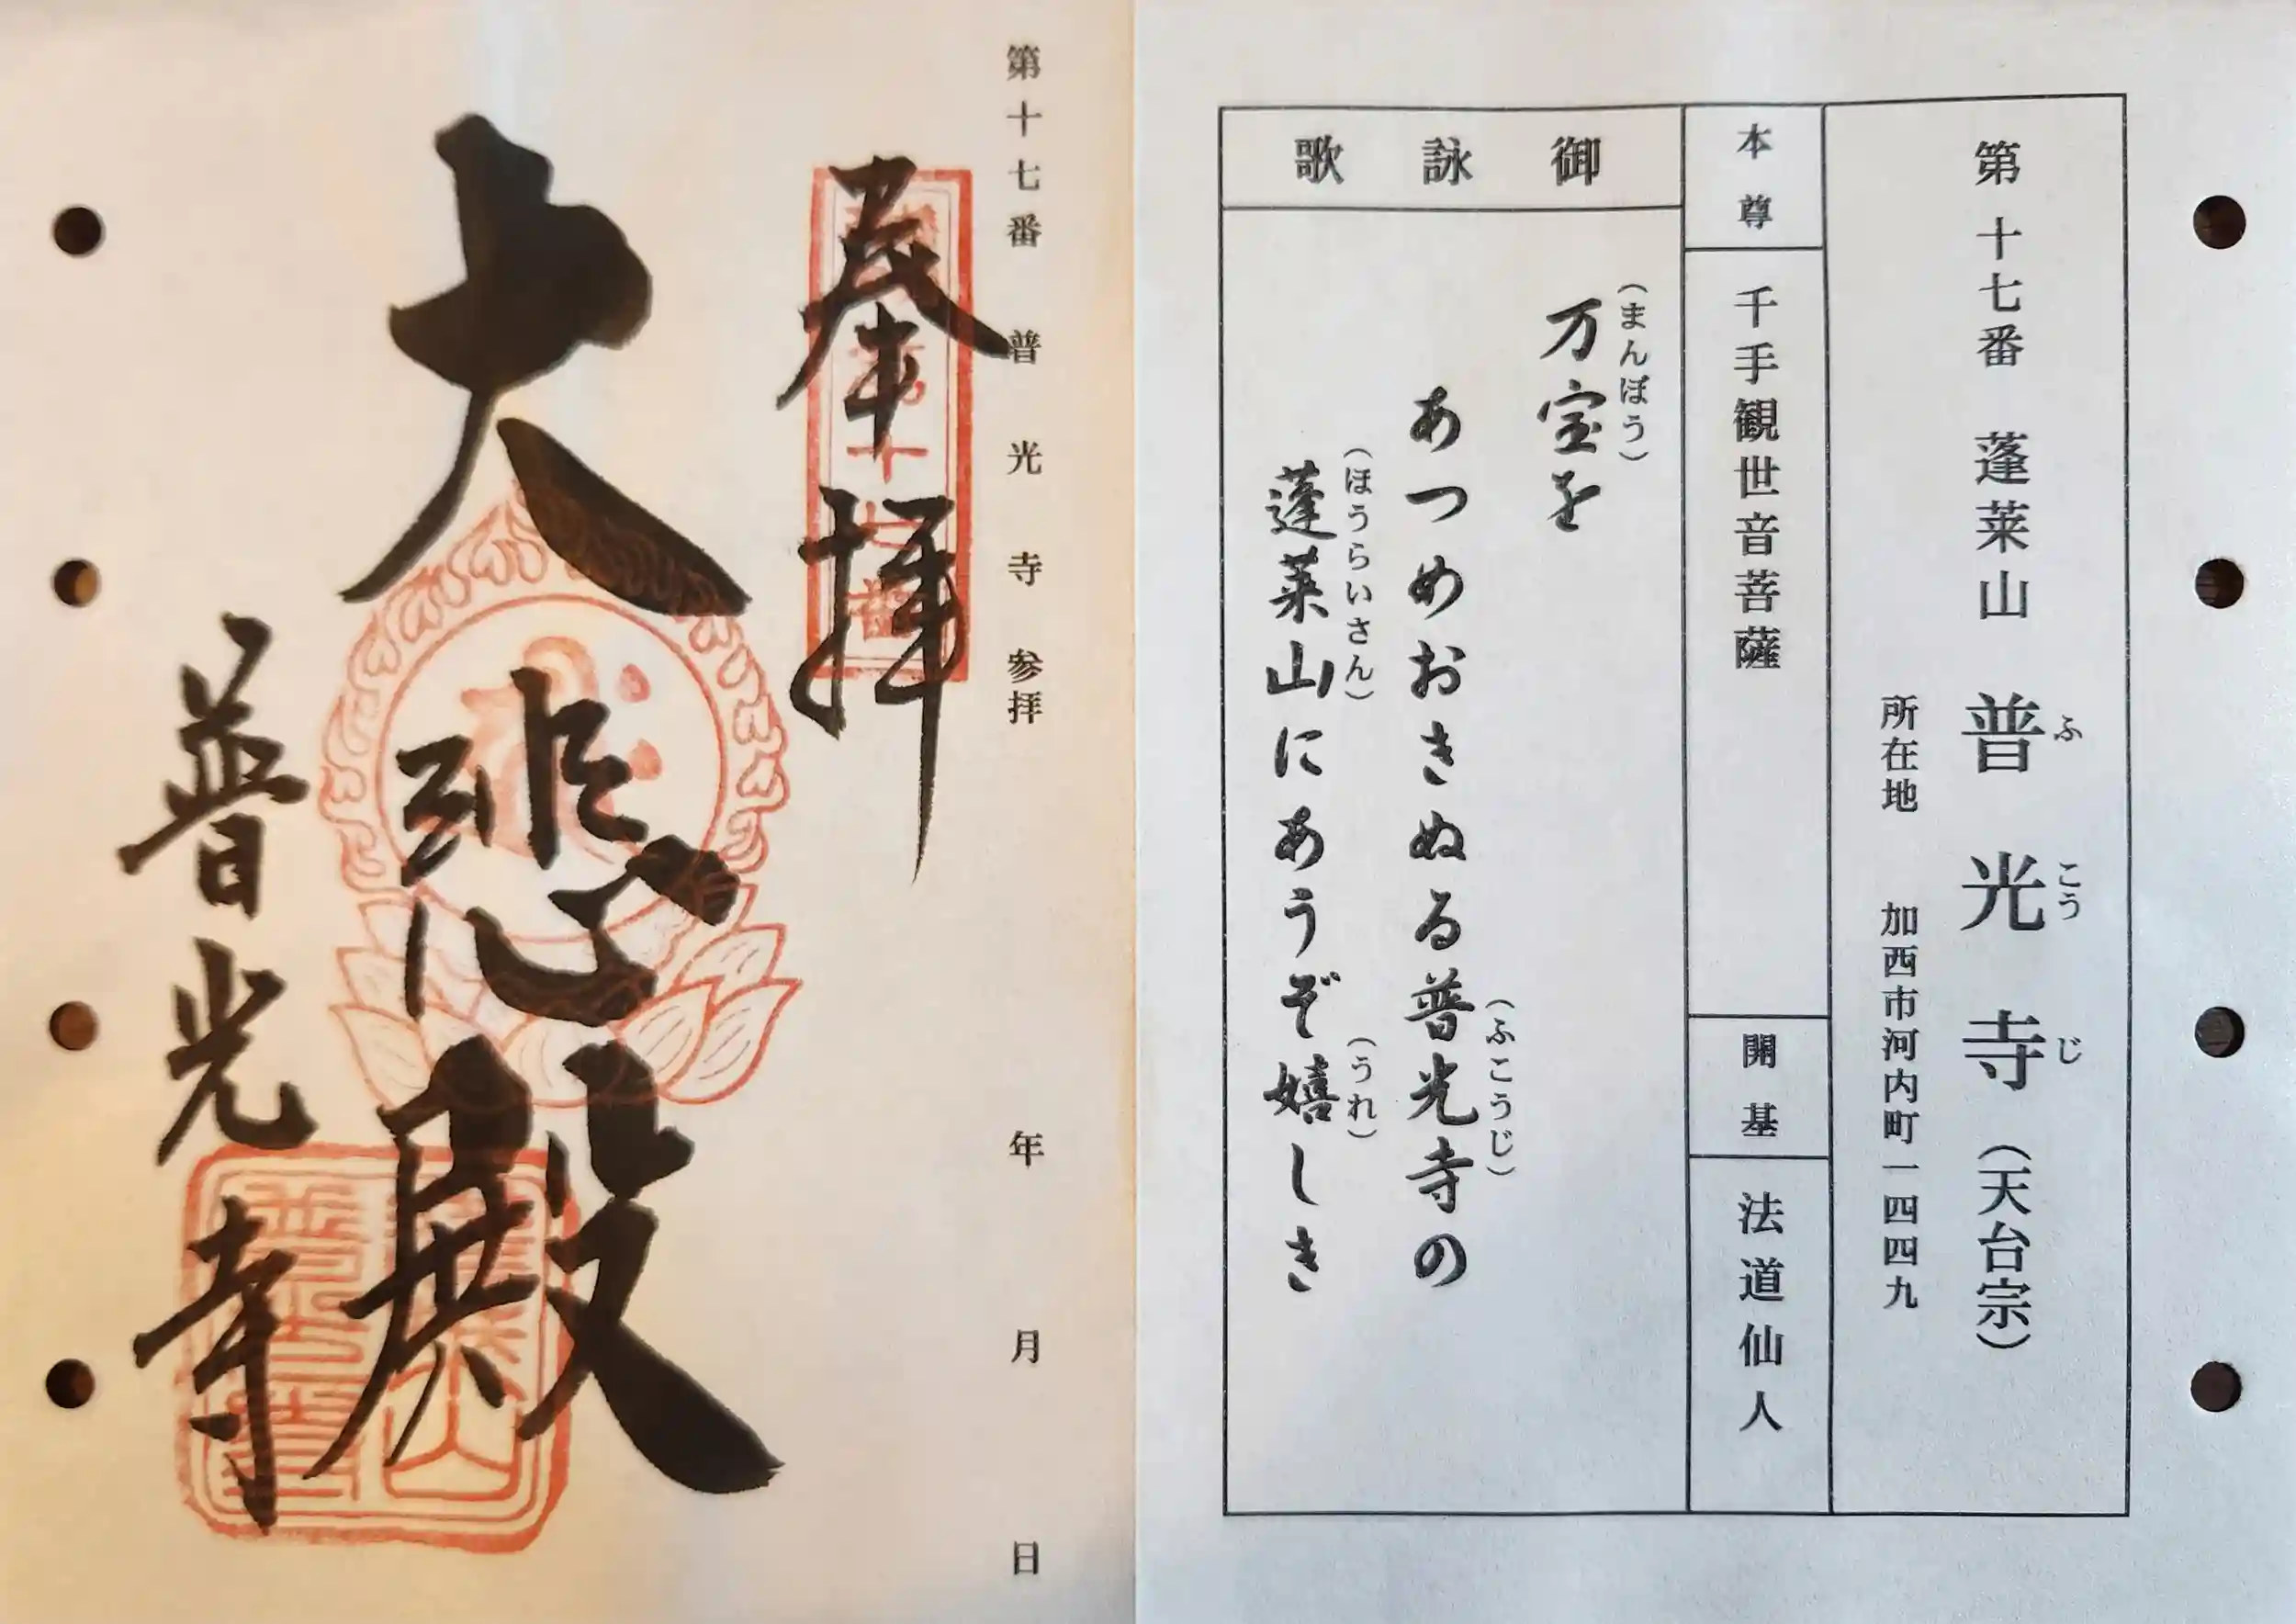 第十七番 蓬莱山 普光寺（天台宗）
ふ こう じ
所在地 加西市河内町一四四九
本尊
千手観世音菩薩
開基
法道仙人
御詠歌
（まんぽう）
万宝を
あつめおきぬる普光寺の
（ふこうじ）
（ほうらいさん）
（うれ）
蓬莱山にあうぞ嬉しき
第十七番 普光寺 参拝 年 月 日
奉拝
大悲殿
普光寺